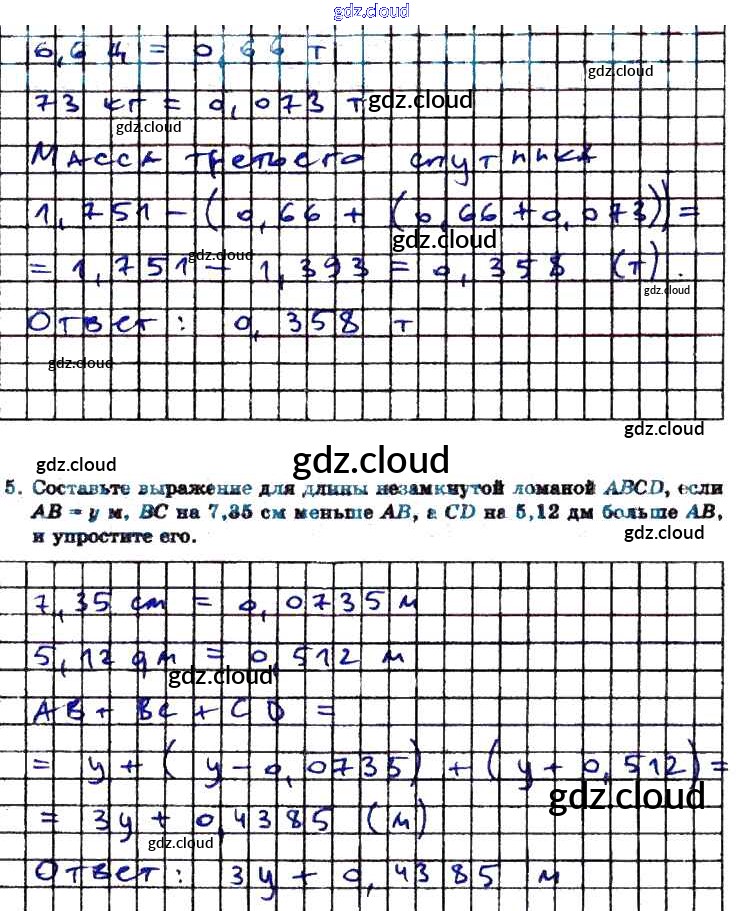 gdz.cloud
6,6 ц = 0,66 т
gdz.cloud
73 кг = 0,073 т gdz.cloud
gdz.cloud
Масса третьего спутника
1,751 - (0,66 + (0,66+0,073)) =
gdz.cloud
= 1,751 - 1,393 = 0,358 (т).
gdz.cloud
gdz.cloud
Ответ: 0,358 т
gdz.cloud
gdz.cloud
gdz.cloud
gdz.cloud
5. Составьте выражение для длины незамкнутой ломаной ABCD, если
AB = y м, BC на 7,35 см меньше AB, а CD на 5,12 дм больше AB,
и упростите его.
gdz.cloud
7,35 см = 0,0735 м
5,12 дм = 0,512 м
gdz.cloud
AB + BC + CD =
= y + (y - 0,0735) + (y + 0,512) =
gdz.cloud
= 3y + 0,4385 (м)
gdz.cloud
Ответ: 3y + 0,4385 м